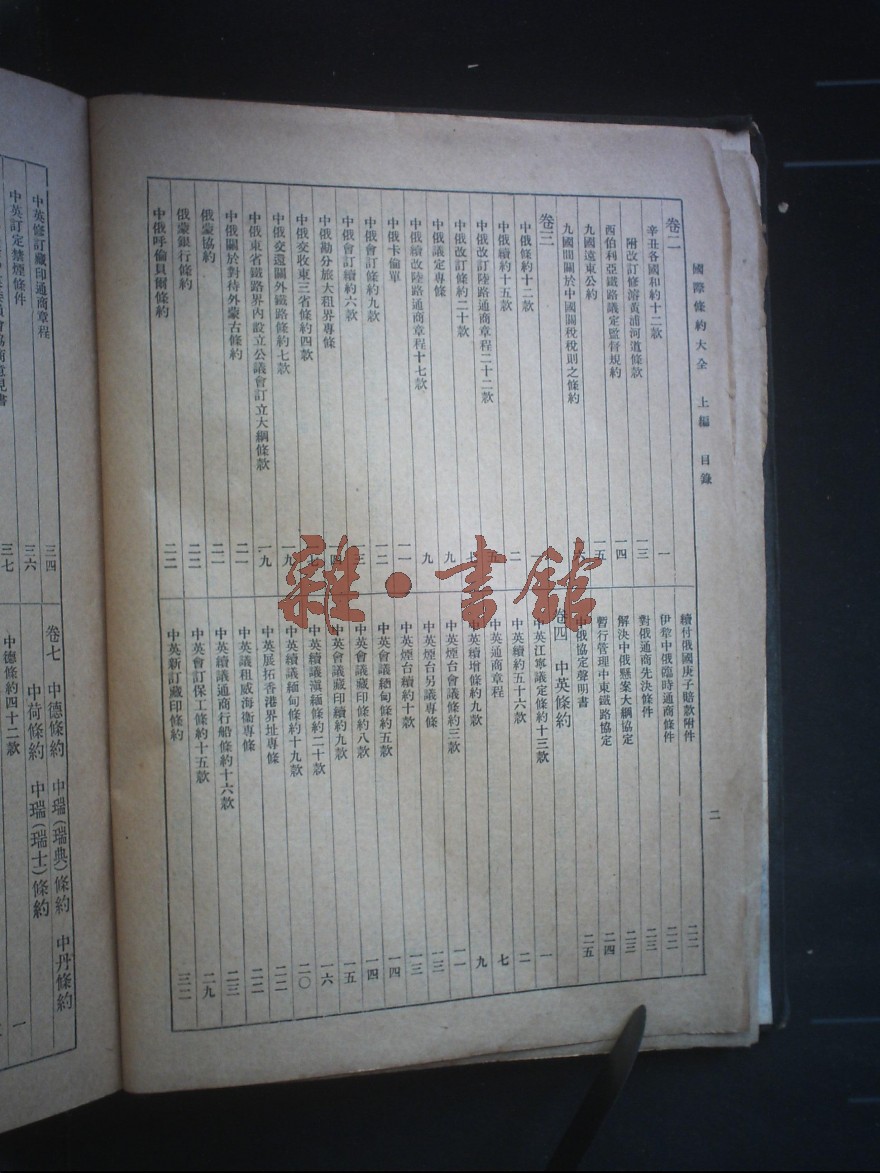 國際條約大全　上編　目錄　二
卷二
辛丑各國和約十二款　一
附改訂修濬黃浦河道條款　一三
西伯利亞鐵路議定監督規約　一四
九國遠東公約　一五
九國間關於中國關稅稅則之條約
卷三
中俄條約十二款　一
中俄續約十五款　二
中俄改訂陸路通商章程二十二款　五
中俄改訂條約二十款　七
中俄議定專條　九
中俄續改陸路通商章程十七款　九
中俄卡倫單　一一
中俄會訂條約九款　一二
中俄會訂續約六款　一三
中俄勘分旅大租界專條　一四
中俄交收東三省條約四款　一七
中俄交還關外鐵路條約七款　一九
中俄東省鐵路界內設立公議會訂立大綱條款　一九
中俄關於對待外蒙古條約　二一
俄蒙協約　二一
俄蒙銀行條約　二二
中俄呼倫貝爾條約　二二
續付俄國庚子賠款附件　二二
伊犂中俄臨時通商條件　二二
對俄通商先決條件　二三
解決中俄懸案大綱協定　二三
暫行管理中東鐵路協定　二四
中俄協定聲明書　二五
卷四　中英條約
中英江寧議定條約十三款　一
中英續約五十六款　二
中英通商章程　七
中英續增條約九款　九
中英煙台會議條約三款　一一
中英煙台另議專條　一三
中英煙台續約十款　一三
中英會議緬甸條約五款　一四
中英會議藏印條約八款　一四
中英會議藏印續約九款　一五
中英續議滇緬條約二十款　一六
中英續議緬甸條約十九款　二〇
中英展拓香港界址專條　二二
中英議租威海衞專條　二二
中英續議通商行船條約十六款　二三
中英會訂保工條約十五款　二九
中英新訂藏印條約　三二
雜·書館
中英修訂藏印通商章程　三四
中英訂定禁煙條件　三六
三七
卷七　中德條約　中瑞(瑞典)條約　中丹條約
中荷條約　中瑞(瑞士)條約
中德條約四十二款　一